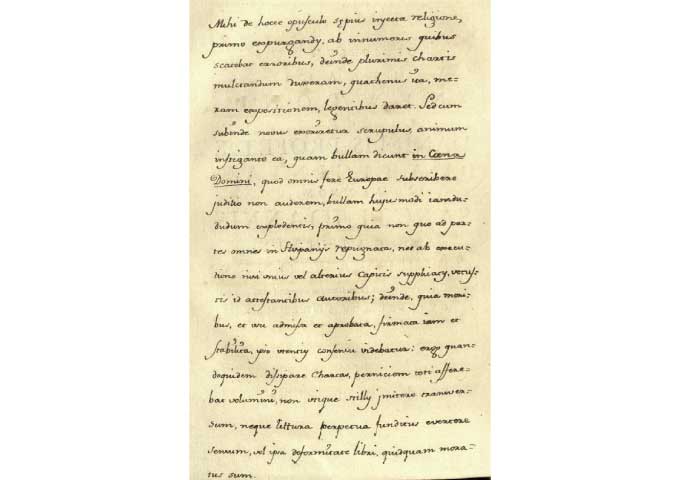 Mihi de hocce opusculo sępius injecta religione,
primo expurgandj, ab innumeris quibus
scatebat erroribus, deinde plurimis chartis
mulctandum duxeram, quathenus ita, me-
ram expositionem, legentibus daret. Sed cum
subinde novus exoriretur scrupulus, animum
instigante ea, quam bullam dicunt in Cœna
Domini, quod omnis fere Europae subscribere
juditio non auderem, bullam hujusmodi iamdu-
dudum explodentis; primo quia non quo ad par-
tes omnes in Hispanijs repugnata, net ab execu-
tione nisi unius vel alterius capitis supplicacj, vetus-
tis id attestantibus autoribus; deinde, quia mori-
bus, et usu admissa et aprobata, firmata iam et
stabilita, ipso utentiũ consensu videbatur: ergo quan-
doquidem dissipare chartas, perniciem toti affere-
bat volumini, non utique stilly jmitere transver-
sum, neque littura perpetua funditus evertere
sensum, vel ipsa deformitate libri, quidquam mora-
tus sum.